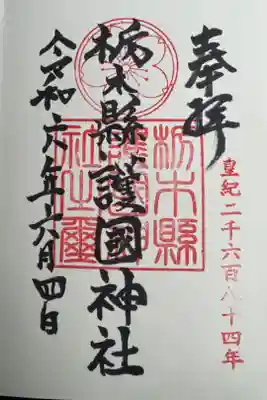 奉拝
皇紀二千六百八十四年
栃木縣護國神社
栃木縣護國神社之璽
令和六年六月四日